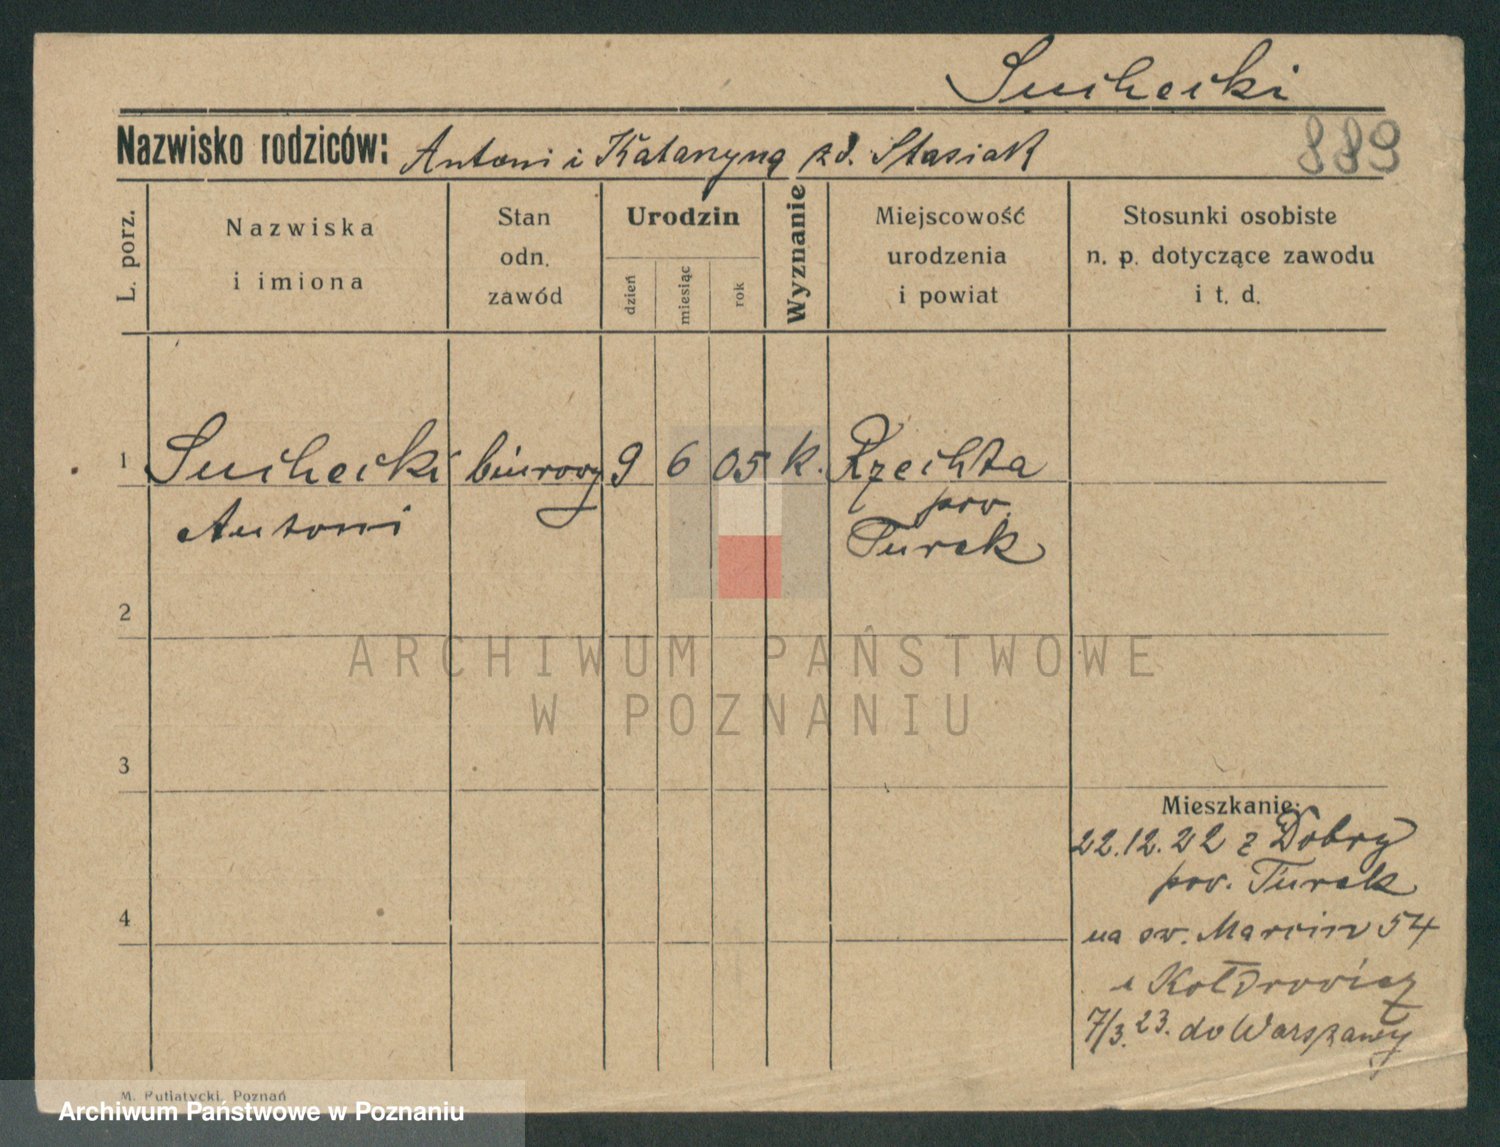 Suchecki
Nazwisko rodziców: Antoni i Katarzyna zd. Stasiak
889
L. porz.
Nazwiska
i imiona
Stan
odn.
zawód
Urodzin
dzień
miesiąc
rok
Wyznanie
Miejscowość
urodzenia
i powiat
Stosunki osobiste
n. p. dotyczące zawodu
i t. d.
1 Suchecki biurowy 9 6 05 k. Rzechta
Antoni
pow.
Turek
2
ARCHIWUM PAŃSTWOWE
W POZNANIU
3
Mieszkanie:
22.12.22 z Dobry
pow. Turek
4
na św. Marcin 54
7/3.23. do Warszawy
M. Putiatycki, Poznań
Archiwum Państwowe w Poznaniu